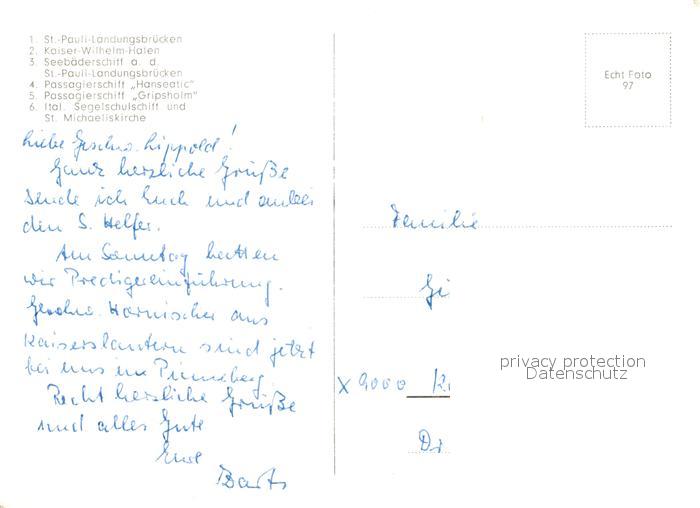 1. St.-Pauli-Landungsbrücken
2. Kaiser-Wilhelm-Hafen
3. Seebäderschiff a. d.
St.-Pauli-Landungsbrücken
4. Passagierschiff „Hanseatic"
5. Passagierschiff „Gripsholm"
6. Ital. Segelschulschiff und
St. Michaeliskirche
Liebe Geschw. Lippold!
Ganz herzliche Grüße
sende ich Euch und
den S. Helfer.
Am Sonntag hatten
wir Predigereinführung.
Geschw. Harnischer aus
Kaiserslautern sind jetzt
bei uns in Pinneberg
Recht herzliche Grüße
und alles Gute
Eure
Echt Foto
97
Familie
X 9000
privacy protection
Datenschutz